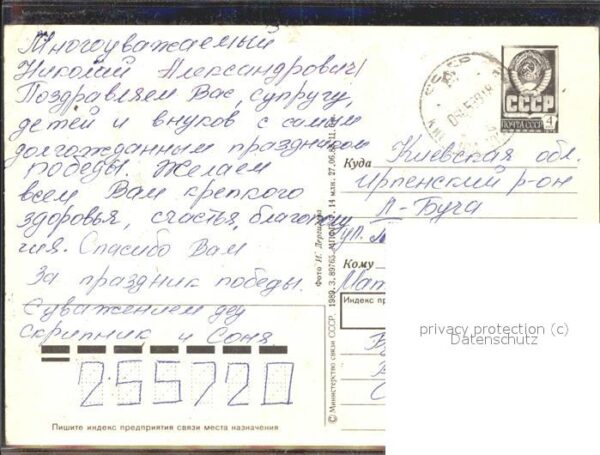 Многоуважаемый
Николай Александрович!
Поздравляем Вас, супругу,
детей и внуков с самым
долгожданным праздником
победы. Желаем
всем Вам крепкого
здоровья, счастья, благополу
чия. Спасибо Вам
За праздник победы.
С уважением дед
Скрипник и Соня
255720
Пишите индекс предприятия связи места назначения
Фото И. Дергилёва
© Министерство связи СССР. 1989.
14 мая. 27.06.8
СССР
ПОЧТА СССР
4
Куда Киевская обл.
Ирпенский р-он
п-Буча
ул.
Кому
Мат
Индекс пр
privacy protection (c)
Datenschutz